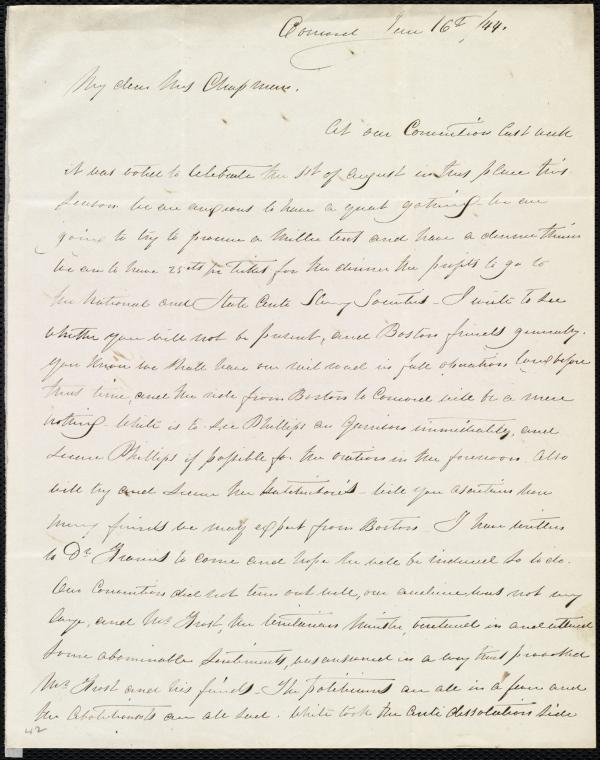 Concord June 16th /44.
My dear Mrs Chapman.
At our Convention last week
it was voted to celebrate the 1st of August in this place this
season. We are anxious to have a great gathering - we are
going to try to procure a Miller tent and have a dinner therein
We are to have 25 cts pr ticket for the dinner the profits to go to
the National and State Anti Slavery Societies - I write to see
whether you will not be present, and Boston friends generally.
You know we shall have our rail road in full operation long before
this time and the ride from Boston to Concord will be a mere
nothing. White is to see Phillips and Garrison immediately, and
secure Phillips if possible for the oration in the forenoon. Also
will try and secure the Hutchinson's - will you ascertain how
many friends we may expect from Boston. I have written
to Dr. Francis to come and hope he will be induced so to do.
Our Convention did not turn out well, our audience was not very
large, and Mr Frost, the Unitarian Minister, ventured in and uttered
some abominable sentiments, was answered in a way that provoked
Mr. Frost and his friends. The politicians are all in a fever and
the Abolitionists are all sad. White took the anti dissolution side
42